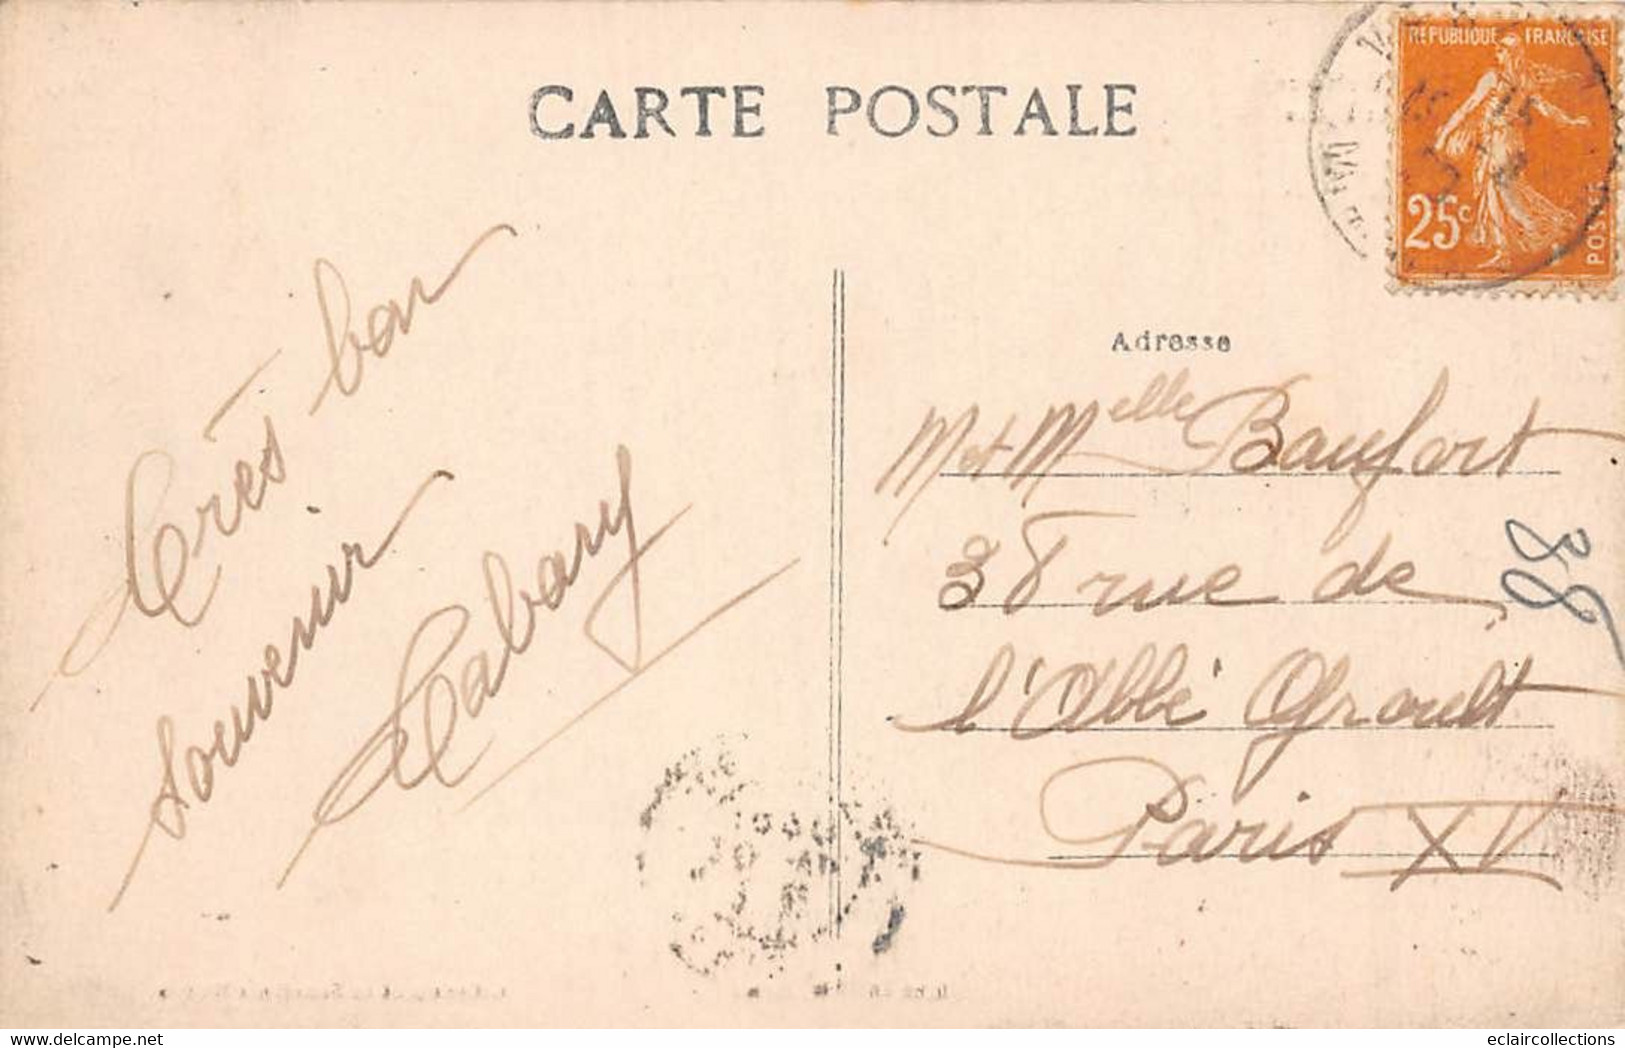 CARTE POSTALE
REPUBLIQUE FRANÇAISE
25c
POSTES
Très bon
souvenir
Cabary
Adresse
M et Melle Baufort
38 rue de
l'Abbé Groult
Paris XV
88
www.delcampe.net
eclaircollections